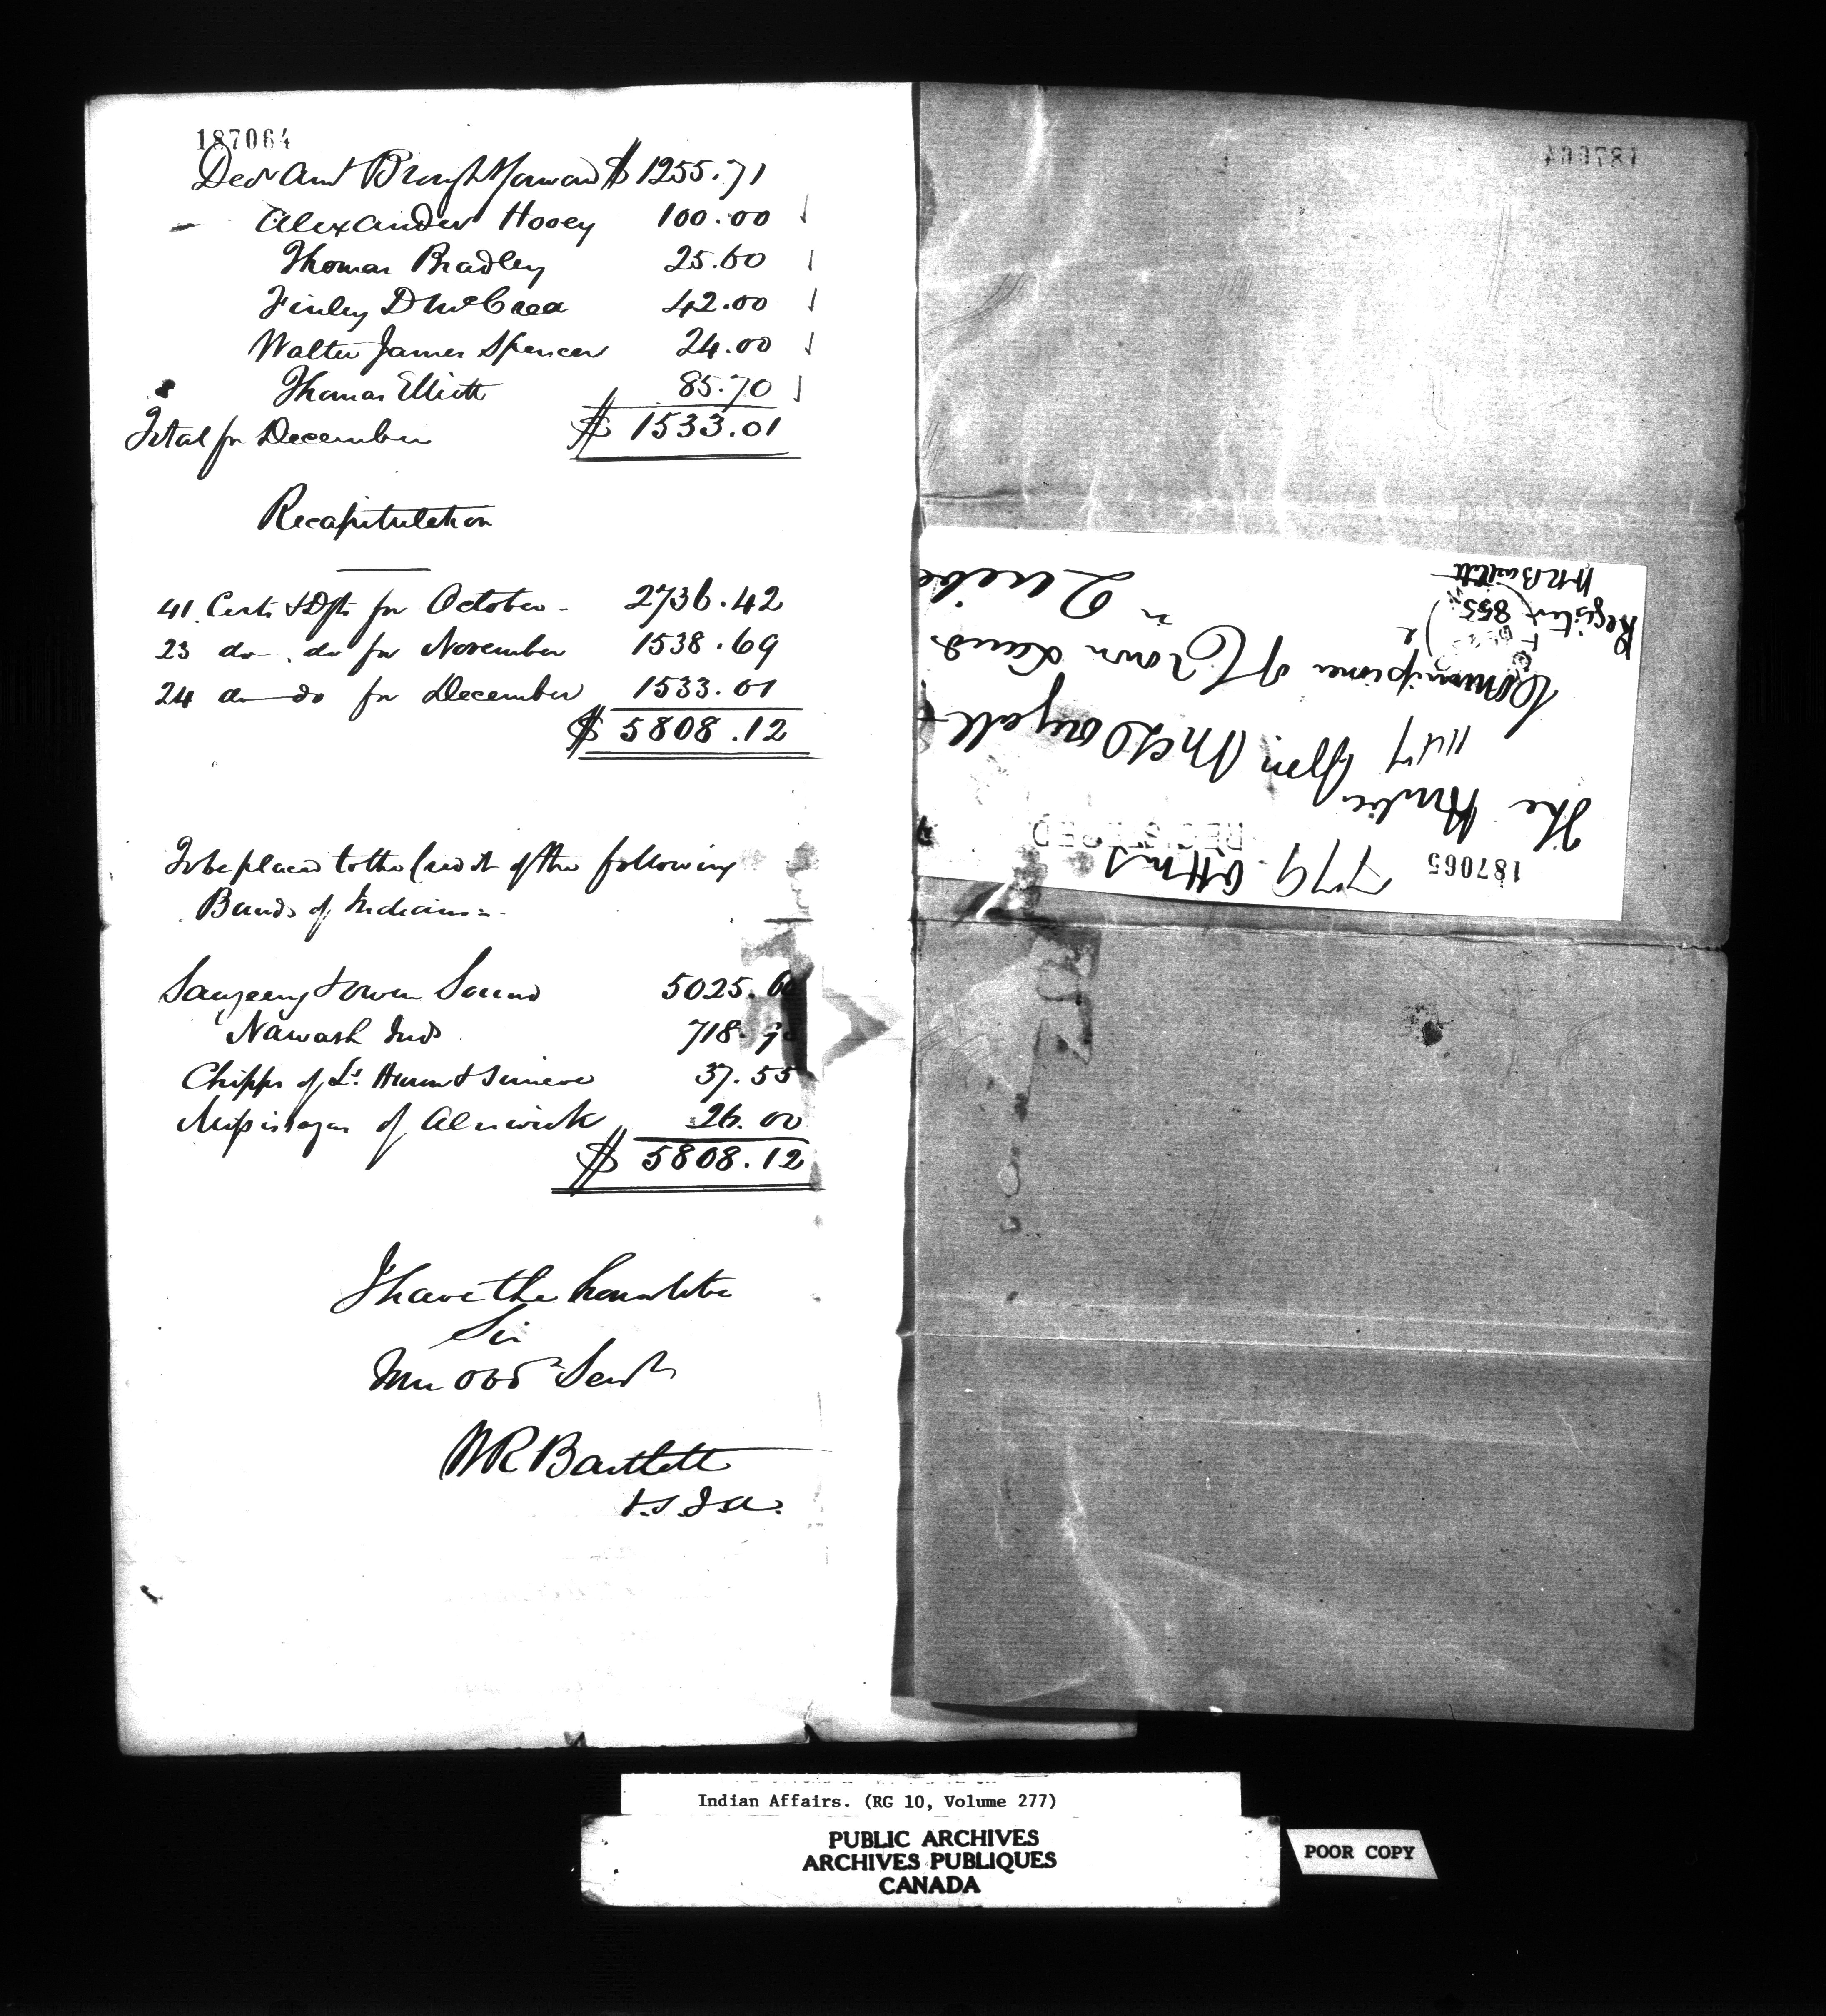 187064
Decr Amt Brought forward $ 1255.71
Alexander Hooey 100.00
Thomas Bradley 25.60
Finley D McCrea 42.00
Walter James Spencer 24.00
Thomas Elliott 85.70
Total for December $ 1533.01
Recapitulation
41 Certs & Dfts for October - 2736.42
23 do . do for November 1538.69
24 do do for December 1533.01
$ 5808.12
To be placed to the Credit of the following
Bands of Indians:-
Saugeeng & Owen Sound 5025.6
Nawash Inds 718.9
Chipps of Ls Huron & Simcoe 37.55
Missisagas of Alnwick 26.00
$ 5808.12
I have the honor to be
Sir
Your obdt Servt
WR Bartlett
V.S.I.A.
187064
187065
779. Ottms
REGISTERED
The Honble Wm McDougall
1147
Commissioner of Crown Lands
Quebe
Register
853
WR Bartlett
Indian Affairs. (RG 10, Volume 277)
PUBLIC ARCHIVES
ARCHIVES PUBLIQUES
CANADA
POOR COPY